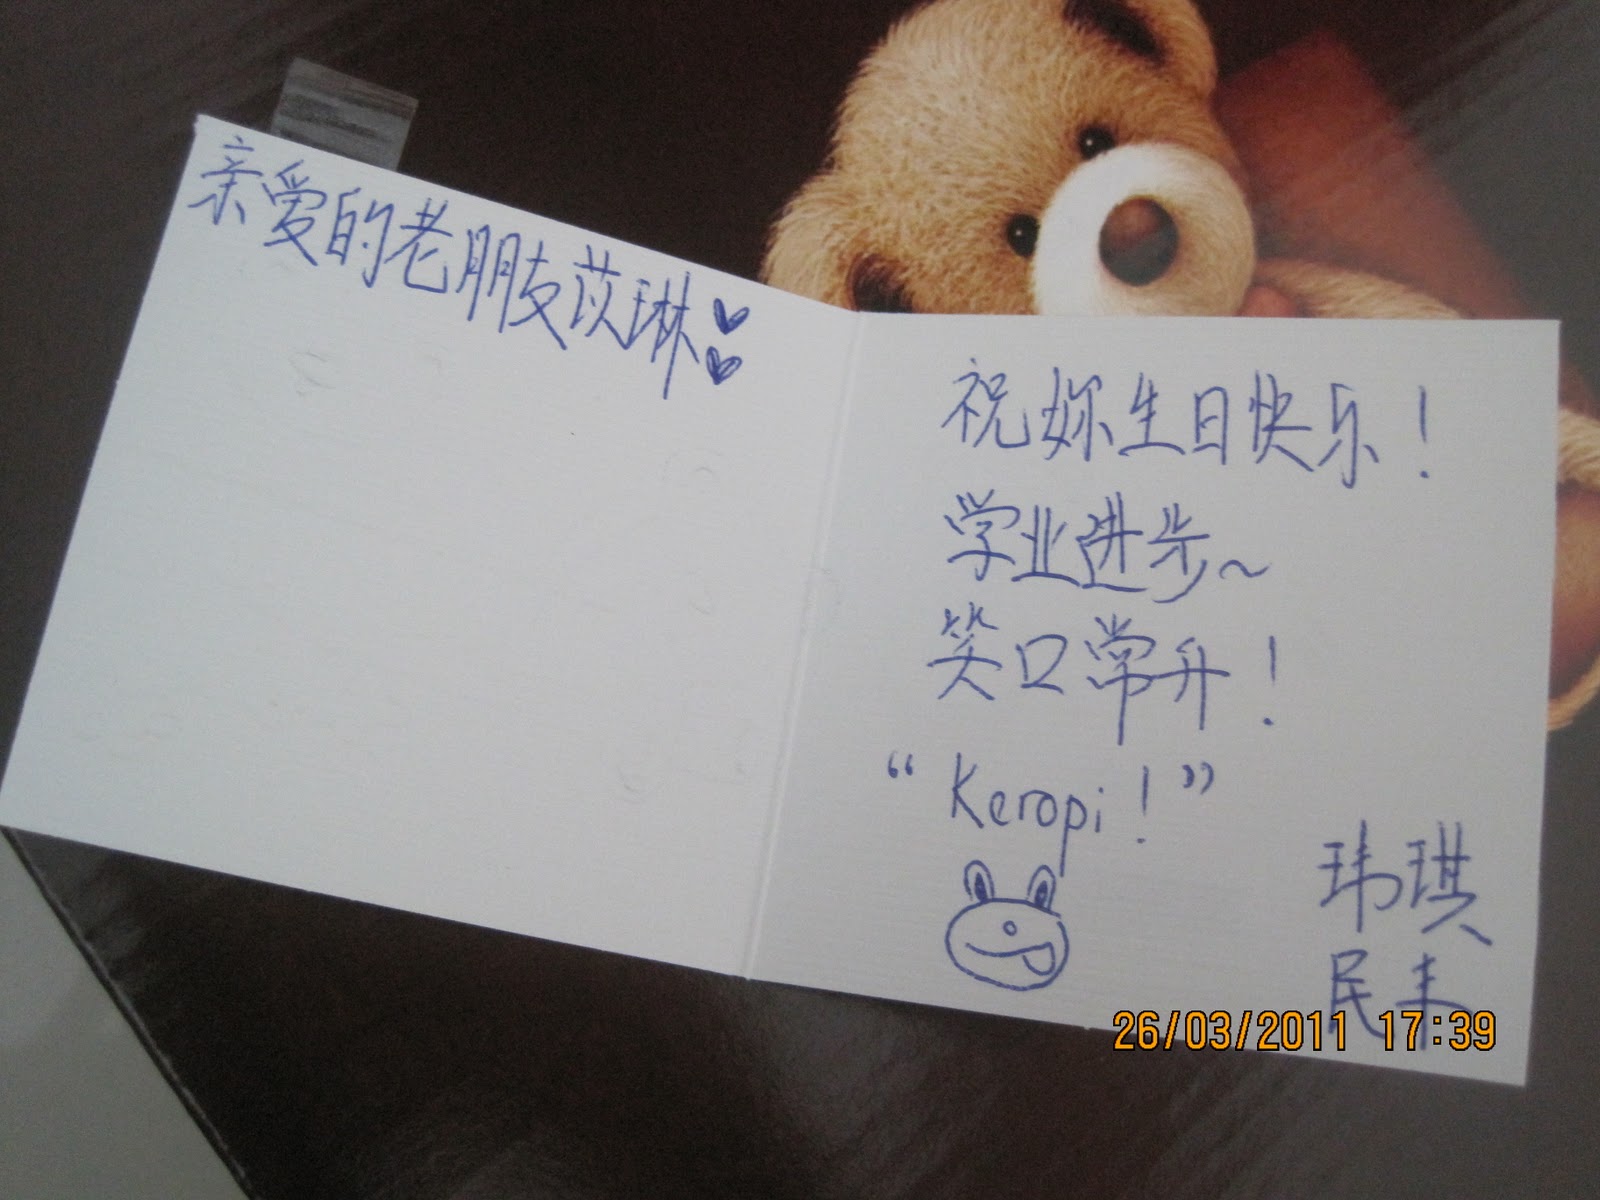 亲爱的老朋友苡琳
祝妳生日快乐！
学业进步~
笑口常开！
“Keropi！”
玮琪
民
26/03/2011 17:39